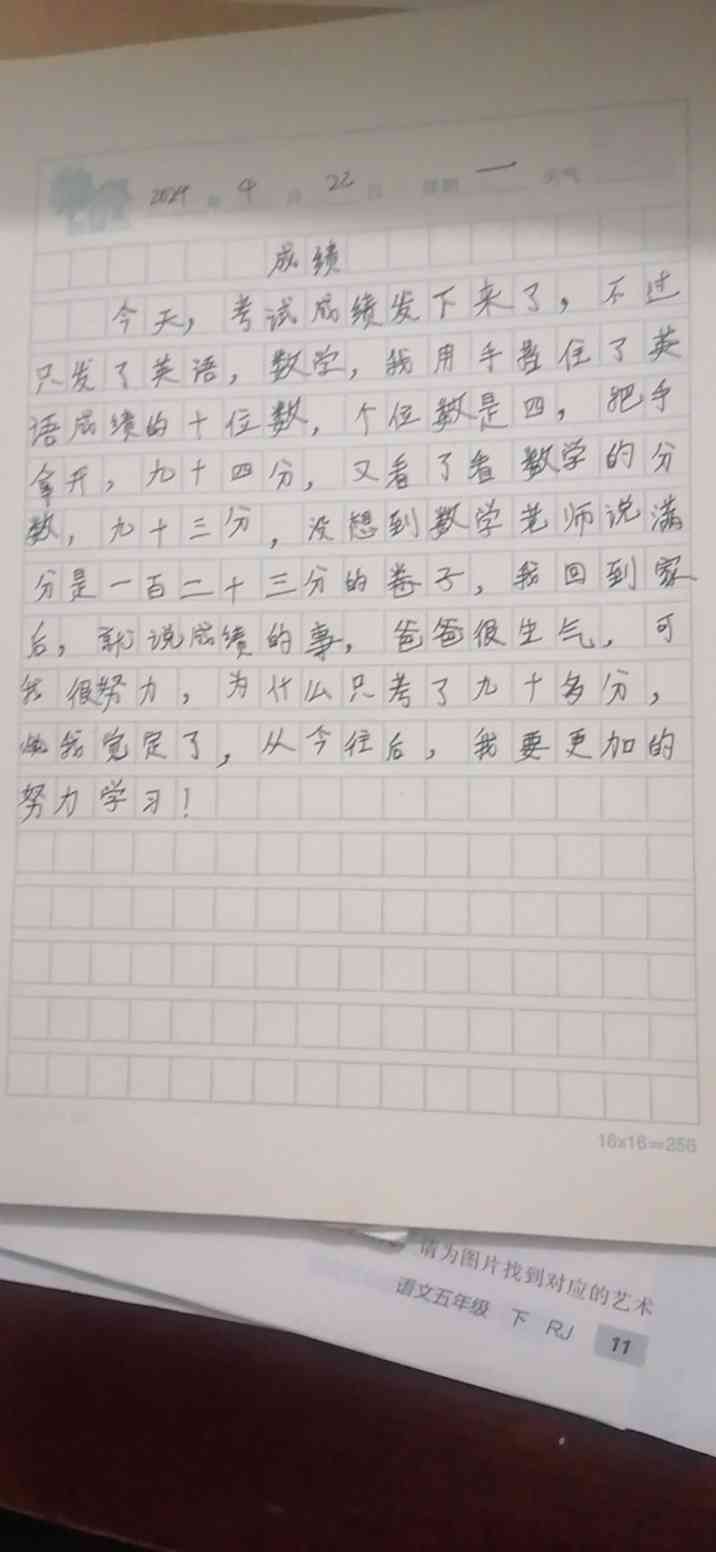 2024 年 4 月 22 日 星期 一 天气
成绩
今天，考试成绩发下来了，不过
只发了英语，数学，我用手挡住了英
语成绩的十位数，个位数是四，把手
拿开，九十四分，又看了看数学的分
数，九十三分，没想到数学老师说满
分是一百二十三分的卷子，我回到家
后，就说成绩的事，爸爸很生气，可
我很努力，为什么只考了九十多分，
我觉定了，从今往后，我要更加的
努力学习！
16x16=256
请为图片找到对应的艺术
语文五年级 下 RJ 11